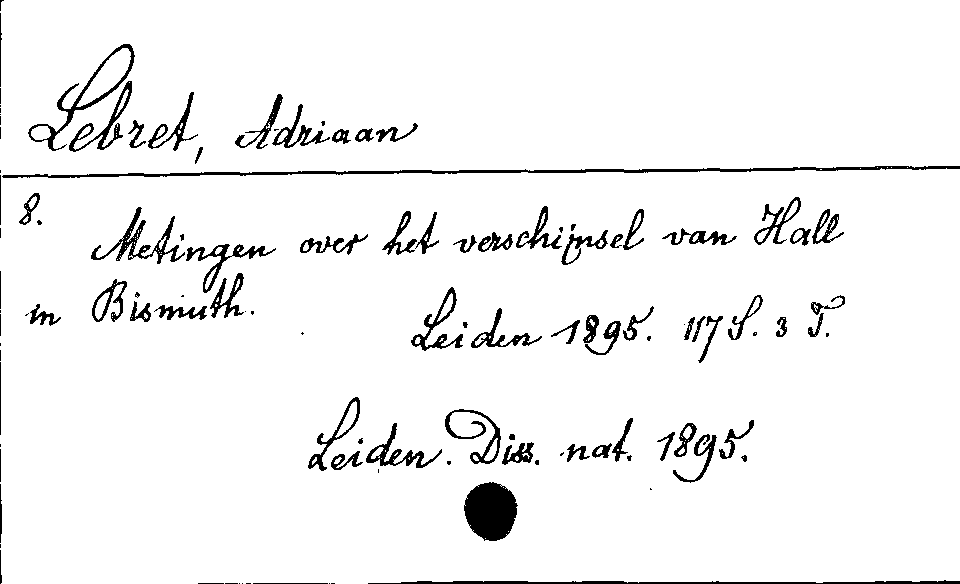 Lebret, Adriaan
8.
Metingen over het verschijnsel van Hall
in Bismuth.
Leiden 1895. 117 S. 3 T.
Leiden. Diss. nat. 1895.